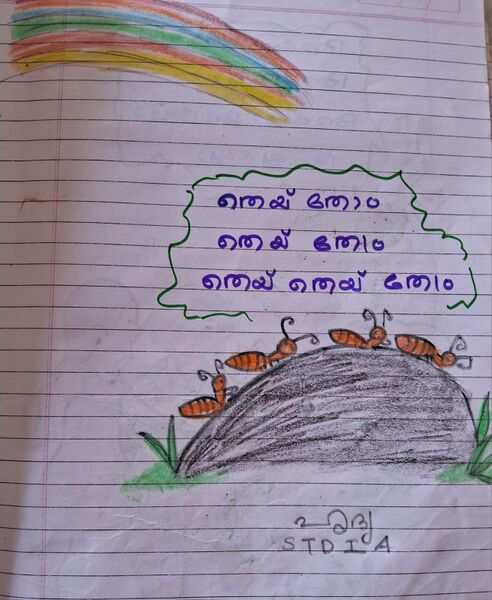 തെയ് തോം
തെയ് തോം
തെയ് തെയ് തോം
STD I A